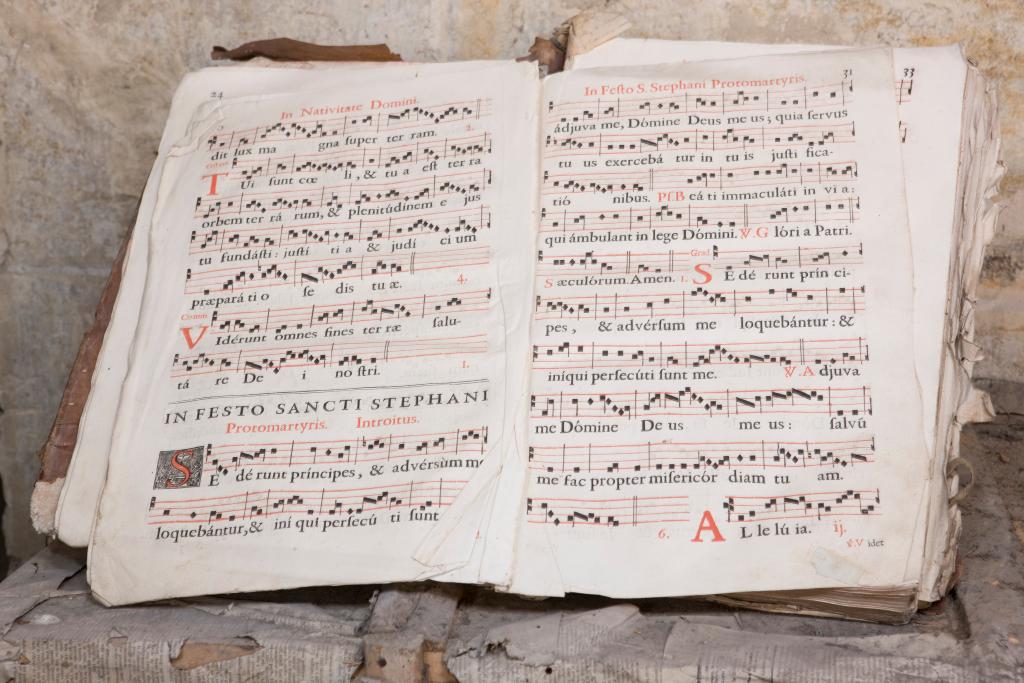 24
In Nativitate Domini.
dit lux ma gna super ter ram. 2.
TUi sunt cœ li, & tu a est ter ra
orbem ter rá rum, & plenitúdinem e jus
tu fundásti: justi ti a & judí ci um
præpará ti o se dis tu æ. 4.
Comm
VIdérunt omnes fines ter ræ salu-
tá re De i no stri. 1.
IN FESTO SANCTI STEPHANI
Protomartyris. Introitus.
SE dé runt príncipes, & advérsùm me
loquebántur, & iní qui persecú ti sunt
31
In Festo S. Stephani Protomartyris.
ádjuva me, Dómine Deus me us; quia servus
tu us exercebá tur in tu is justi fica-
tió nibus. Ps. B eá ti immaculáti in vi a:
qui ámbulant in lege Dómini. ℣. G lóri a Patri.
S æculórum. Amen. 1. Grad. SE dé runt prín ci-
pes, & advérsum me loquebántur: &
iníqui persecúti sunt me. ℣. A djuva
me Dómine De us me us: salvú
me fac propter misericór diam tu am.
6. AL le lú ia. ij.
℣. V idet
33